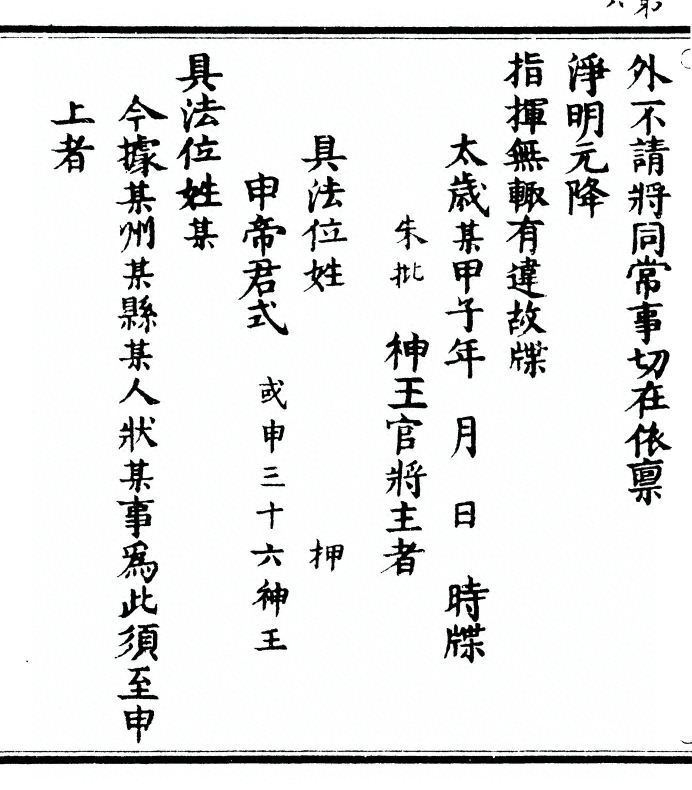 外不請將同常事切在依禀
淨明元降
指揮無輙有違故牒
太歲某甲子年 月 日 時牒
朱批 神王官將主者
具法位姓 押
申帝君式 或申三十六神王
具法位姓某
今據某州某縣某人狀某事爲此須至申
上者